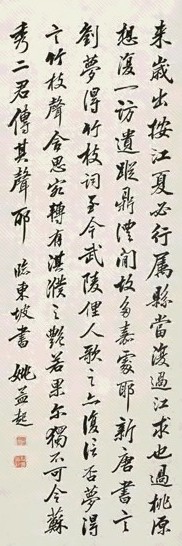 来歲出按江夏必行属縣當復過江求也過桃源
想復一訪遺蹤鼎澧間故多嘉處耶新唐書言
劉夢得竹枝詞至今武陵俚人歌之亦復信否夢得
言竹枝聲含思宛轉有淇濮之艷若果尔獨不可令蘇
秀二君傳其聲耶 臨東坡書 姚孟起